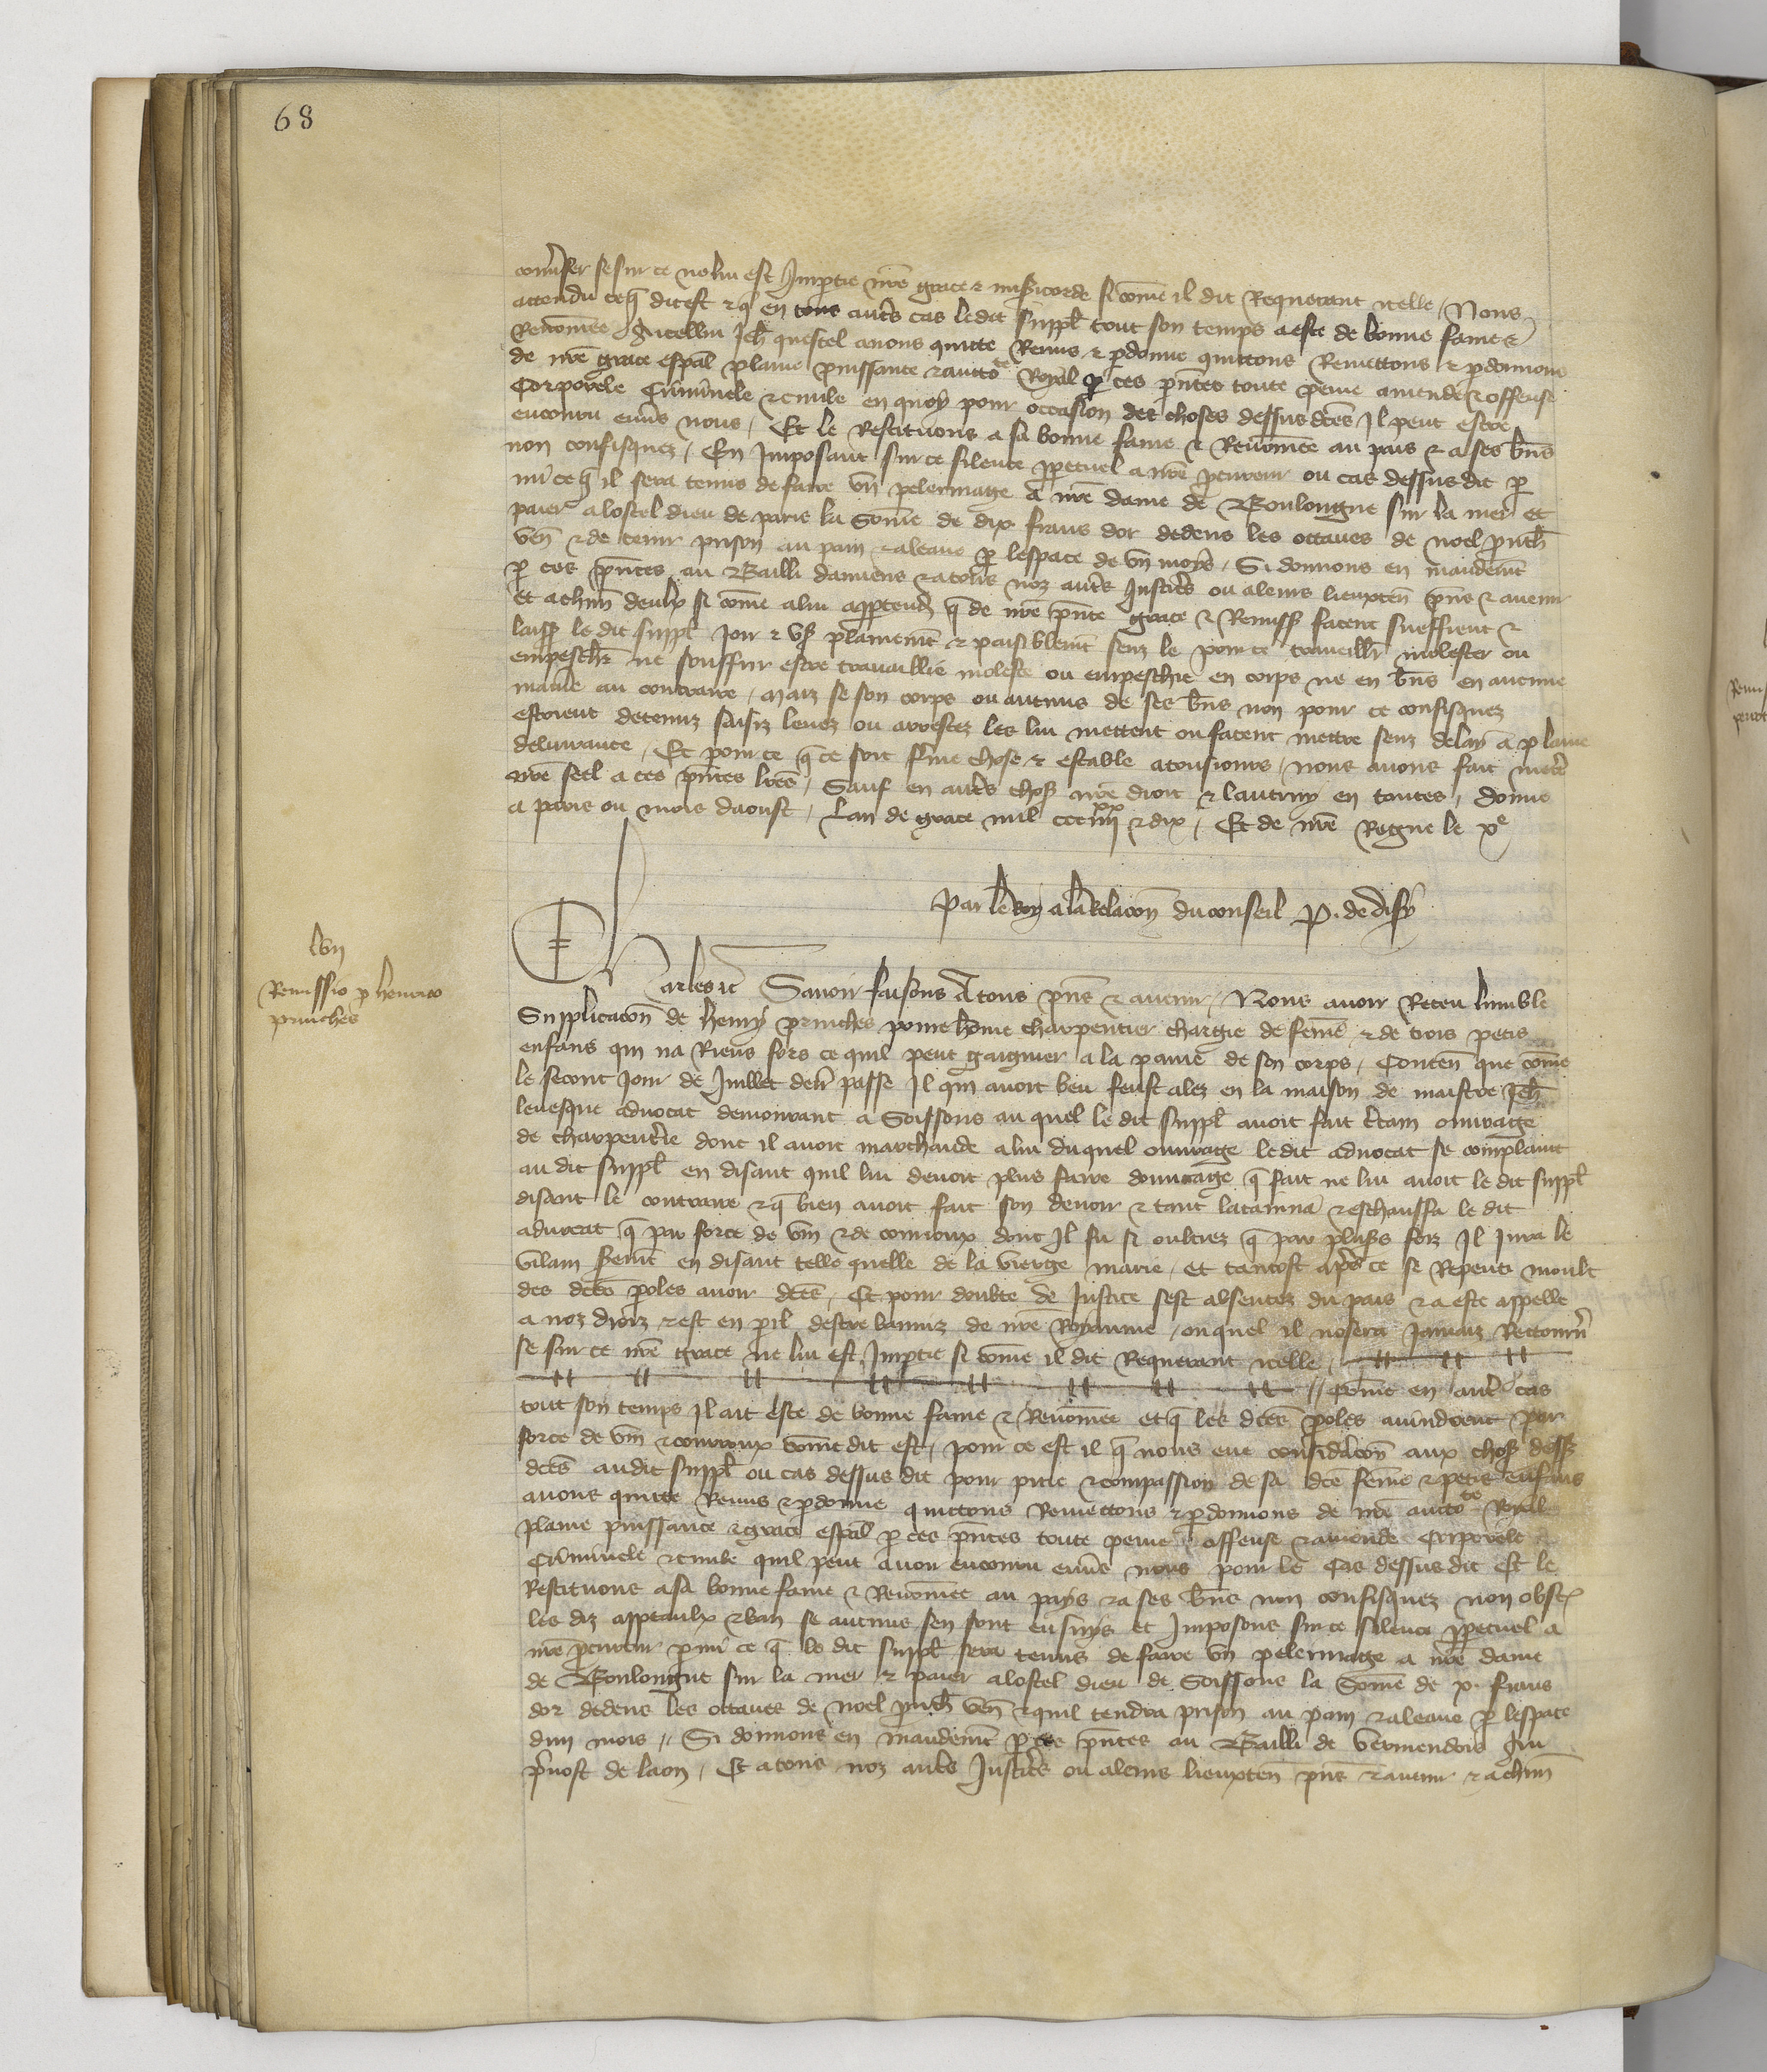 68
conv̾ser se sur ce ne lui est Imp̱tie nr̄e grace & miß̾icorde si cōme il dit Requerant icelle / Nous
attendu ce q̄ dit est & q̄ en tous autr̄s cas ledit suppl̄ tout son temps a este de bonne fame &
Renōmee / Jcellui Jeh̄ quessel auons quitte Remis & p̱donne quittons Remettons & p̱donnons
de nr̄e grace esp̄al plaine puissance & aucto^te Royal p̱ ces p̄ntes toute peine amende & offense
Corporele Criminele & ciuile en quoy pour occasion des choses dessus dc̄es Il peut estre
encouru enu̾s nous / Et le Restituons a sa bonne fame & Renōmee au pais & a ses bn̄s
non confisquez / En Jmposant sur ce silence p̱petuel a nr̄e p̱cureur ou cas dessus dit p̱
mi ce q̄ il sera tenus de faire vn pelerinage a nr̄e dame de Boulongne sur la mer et
paier a lostel dieu de paris la Sōme de dix frans dor dedens les octaues de noel p̱uch̄
ven̄ & de tenir prison au pain & a leaue p̱ lespace de vn moys / Si donnons en mandem̄t
p̱ ces p̄ntes au Bailli damiens & a touz noz autr̄s Justic̾s ou a leurs lieuxten̄ p̄ns & auenir
et a chūn deulx si cōme a lui app̱tendr̄ q̄ de nr̄e p̄nte grace & Remiss̄ facent sueffrent &
laissē le dit suppl̄ Joir & vs̄ plainem̄t & paisiblem̄t senz le pour ce trauaillier molester ou
empesch̄r ne souffrir estre trauaillie moleste ou empeschie en corps ne en bn̄s en aucune
maniē au contraire / Maiz se son corps ou aucuns de ses bn̄s non pour ce confisquez
estoient detenuz saisiz leuez ou arrestez les lui mettent ou facent mettre senz delay a plaine
deliurance / Et pour ce q̄ ce soit ferme chose & estable a tousiours / Nous auons fait mettr̄
nr̄e seel a ces p̄ntes lr̄es / Sauf en autr̄s chos̄ nr̄e droit & lautruy en toutes / Donne
a paris ou mois daoust / Lan de grace mil ccc iiii^xx & dix / Et de nr̄e Regne le x^e
Par le Roy a la Relacōn du conseil P. de Disy
lvij
Remissio p̱ henrico
pruches
Charles &c̄ Sauoir faisons A tous p̄ns & auenir / Nous auoir Receu lumble
Supplicacōn de henry pruches poure hōme charpentier chargie de fēme & de trois petis
enfans qui na Riens fors ce quil peut gaignier a la paine de son corps / Conten̄ que cōme
le second Jour de Juillet dern̄ passe Il qui auoit beu feust alez en la maison de maistre Jeh̄
leuesque aduocat demourant a Soissons au quel le dit suppl̄ auoit fait c̾tain ouurage
de charpent̾ie dont il auoit marchande a lui duquel ouurage ledit aduocat se complaint
au dit suppl̄ en disant quil lui deuoit plus faire douurage q̄ fait ne lui auoit le dit suppl̄
disant le contraire & q̄ bien auoit fait son deuoir & tant latainna & eschauffa le dit
aduocat q̄ par force de vin & de courroux dont Il fu si oultrez q̄ par plus̄s foiz Il Jura le
vilain serm̄t en disant telle quelle de la vierge marie / et tantost ap̄s ce se Repenti moult
des dc̄es paroles auoir dc̄es / Et pour doubte de Justice sest absentez du pais & a este appelle
a noz droiz & est en p̱il destre banniz de nr̄e Royaume / ouquel il nosera Jamaiz Rettourn̄
se sur ce nr̄e grace ne lui est Jmp̱tie si cōme il dit Requerant icelle /
// Cōme en autr̄s cas
tout son temps Il ait este de bonne fame & Renōmee et q̄ les dc̄es p̱oles auindrent par
force de vin & courroux cōme dit est / pour ce est il q̄ nous eue consid̾acōn aux chos̄ dess̄
dc̄es audit suppl̄ ou cas dessus dit pour pitie & compassion de sa dc̄e fēme & petis enfans
auons quitte Remis & p̱donne quittons Remettons & p̱donnons de nr̄e aucto^te Royal
plaine puissance & grace esp̄al p̱ ces p̄ntes toute peine offense & amende Corporele
Criminele & ciuile quil peut auoir encouru enu̾s nous pour le Cas dessus dit Et le
Restituons a sa bonne fame & Renōmee au pays & a ses bn̄s non confisquez non obst̄
les diz appeaulx & ban se aucuns sen sont ensuys et Jmposons sur ce silence p̱petuel a
nr̄e p̱cureur p̱mi ce q̄ le dit suppl̄ sera tenus de faire vn pelerinage a nr̄e dame
de Boulongne sur la mer & paier a lostel dieu de Soissons la Sōme de x. frans
dor dedens les octaues de noel p̱uch̄ ven̄ & quil tendra prison au pain & a leaue p̱ lespace
dun mois // Si donnons en mandem̄t p̱ ces p̄ntes au Bailli de v̾mendois au
p̾uost de laon / Et a tous noz autr̄s Justic̾s ou a leurs lieuxten̄ p̄ns & auenir & a chūn